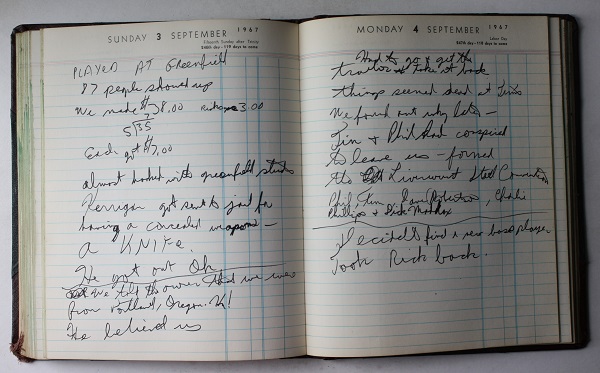 SUNDAY 3 SEPTEMBER 1967
Sixteenth Sunday after Trinity
246th day—119 days to come
PLAYED AT Greenfield
87 people showed up
We made $38.00 3.00
7
5)35
Each got $7.00
almost hooked with greenfield
Kerrigan got sent to jail for
having a concealed weapon —
a KNIFE.
He got out Ok
We told the owner that we were
from Portland, Oregon.
He believed us
MONDAY 4 SEPTEMBER 1967
Labor Day
247th day—118 days to come
Had to go & get the
trailer & take it back
things seemed dead at Tim's
We found out why later —
Tim & Phil had conspired
to leave us — formed
the Liverwurst Steel Convention
Phil, Tim, Robertson, Charlie
Phillips & Dick Maddox
Decided to find a new bass player
took Rick back.